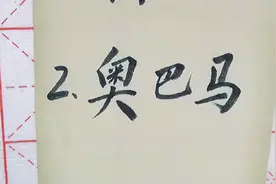 2、奥巴马